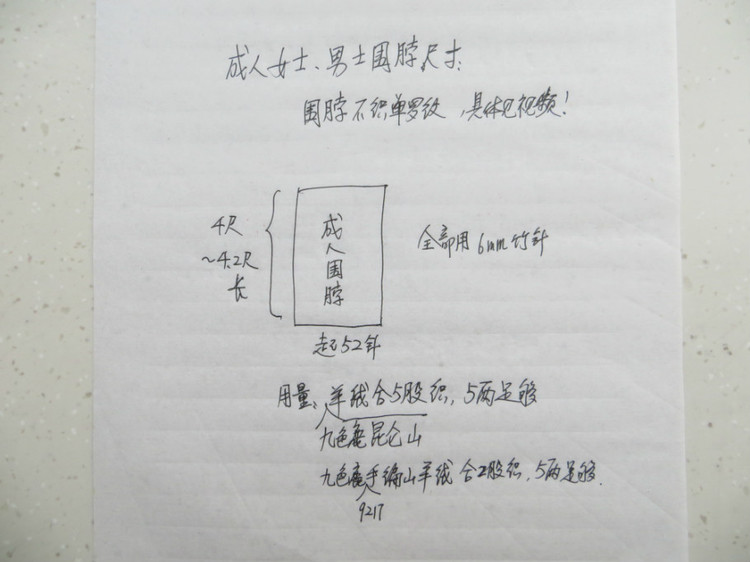 成人女士、男士围脖尺寸:
围脖不织单罗纹,具体见视频!
4尺
~4.2尺
长
成人围脖
全部用6mm竹针
起52针
用量、羊绒合5股织,5两足够
九色鹿昆仑山
九色鹿手编山羊绒合2股织,5两足够.
9217